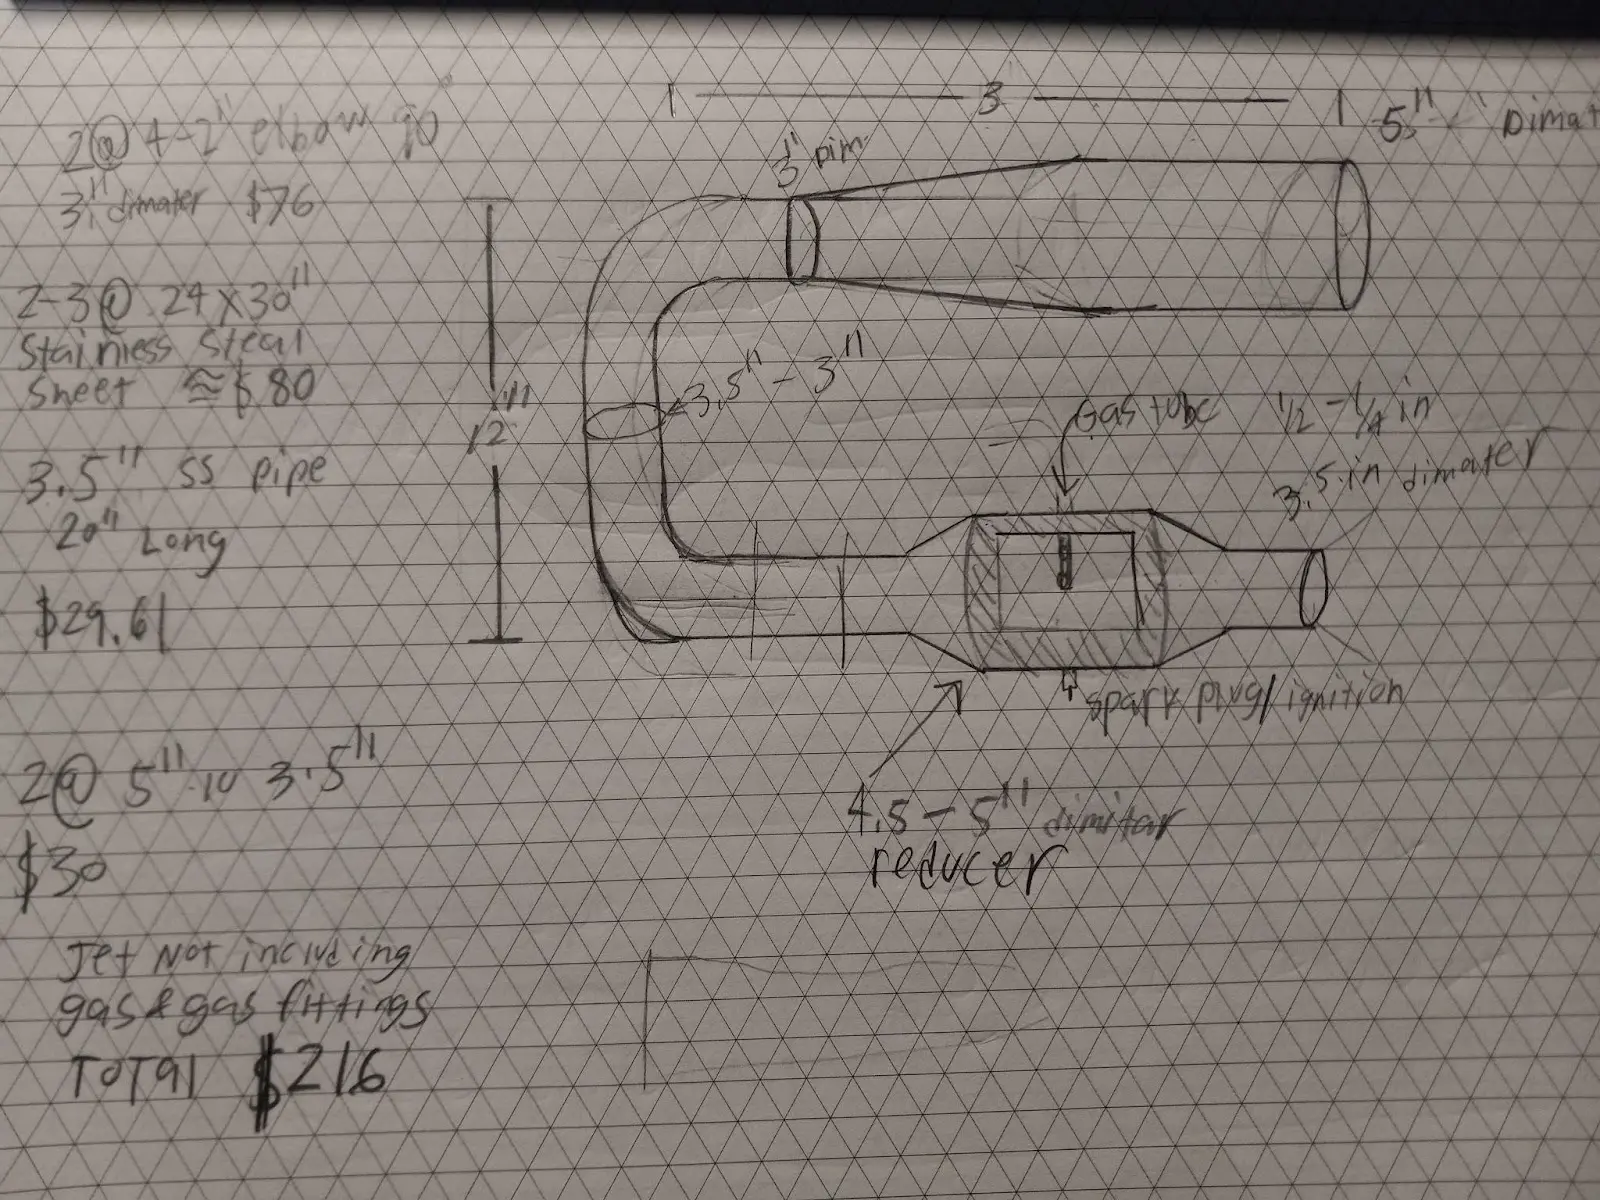 2@ 4-2" elbow 90
3" dimater $76
2-3@ 24 x 30"
Stainless Steal
Sheet ≈ $80
3.5" SS pipe
20" Long
$29.61
2@ 5" to 3.5"
$30
Jet Not including
gas & gas fittings
TOTAl $216
3
5" Dimat
3" Dim
12"
3.5" - 3"
Gas tube 1/2 - 1/4 in
3.5 in dimater
spark plug/ignition
4.5 - 5" dimitar
reducer